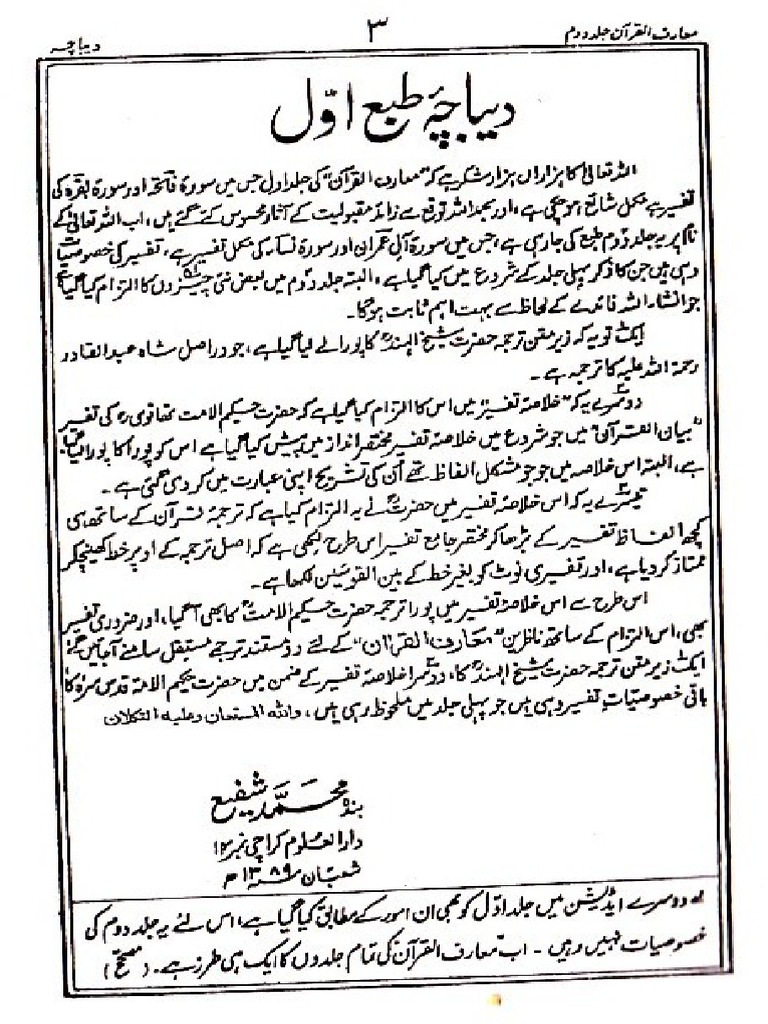 معارف القرآن جلد دوم ۳ دیباچہ
دیباچۂ طبع اوّل
اللہ تعالیٰ کا ہزاراں ہزار شکر ہے کہ "معارف القرآن" کی جلد اول جس میں سورۂ فاتحہ اور سورۂ بقرہ کی
تفسیر ہے مکمل شائع ہوچکی ہے، اور بحمد اللہ توقع سے زائد مقبولیت کے آثار محسوس کئے گئے ہیں، اب اللہ تعالیٰ کے
نام پر یہ جلد دوم طبع کی جارہی ہے، جس میں سورۂ آل عمران اور سورۂ نساء کی مکمل تفسیر ہے، تفسیر کی خصوصیات
وہی ہیں جن کا ذکر پہلی جلد کے شروع میں کیا گیا ہے، البتہ جلد دوم میں بعض نئی چیزوں کا التزام کیا گیا ہے
جو انشاء اللہ فائدے کے لحاظ سے بہت اہم ثابت ہوگا۔
ایک تو یہ کہ زیر متن ترجمہ حضرت شیخ الہندؒ کا پورا لے لیا گیا ہے، جو دراصل شاہ عبدالقادر
رحمۃ اللہ علیہ کا ترجمہ ہے۔
دوسرے یہ کہ "خلاصۂ تفسیر" میں اس کا التزام کیا گیا ہے کہ حضرت حکیم الامت تھانوی رہ کی تفسیر
"بیان القرآن" میں جو شروع میں خلاصۂ تفسیر مختصر انداز میں پیش کیا گیا ہے اس کو پورا کا پورا لیا گیا
ہے، البتہ اس خلاصہ میں جو جو مشکل الفاظ تھے اُن کی تشریح اپنی عبارت میں کردی گئی ہے۔
تیسرے یہ کہ اس خلاصۂ تفسیر میں حضرتؒ نے یہ التزام کیا ہے کہ ترجمۂ قرآن کے ساتھ ہی
کچھ الفاظ تفسیر کے بڑھا کر مختصر جامع تفسیر اس طرح لکھی ہے کہ اصل ترجمہ کے اوپر خط کھینچ کر
ممتاز کردیا ہے، اور تفسیری نوٹ کو بغیر خط کے بین القوسین لکھا ہے۔
اس طرح سے اس خلاصۂ تفسیر میں پورا ترجمہ حضرت حکیم الامتؒ کا بھی آگیا، اور ضروری تفسیر
بھی، اس التزام کے ساتھ ناظرین "معارف القرآن" کے لئے دو مستند ترجمے مستقل سامنے آجائیں گے
ایک زیر متن ترجمہ حضرت شیخ الہندؒ کا، دوسرا خلاصۂ تفسیر کے ضمن میں حضرت حکیم الامۃ قدس سرہٗ کا
باقی خصوصیاتِ تفسیر وہی ہیں جو پہلی جلد میں ملحوظ رہی ہیں، واللہ المستعان وعلیہ التکلان
بندہ محمد شفیع
دار العلوم کراچی نمبر ۱۴
شعبان سنہ ۱۳۸۹ھ
لہ دوسرے ایڈیشن میں جلد اوّل کو بھی ان امور کے مطابق کیا گیا ہے، اس لئے یہ جلد دوم کی
خصوصیات نہیں رہیں۔ اب معارف القرآن کی تمام جلدوں کا ایک ہی طرز ہے۔ (مصحح)